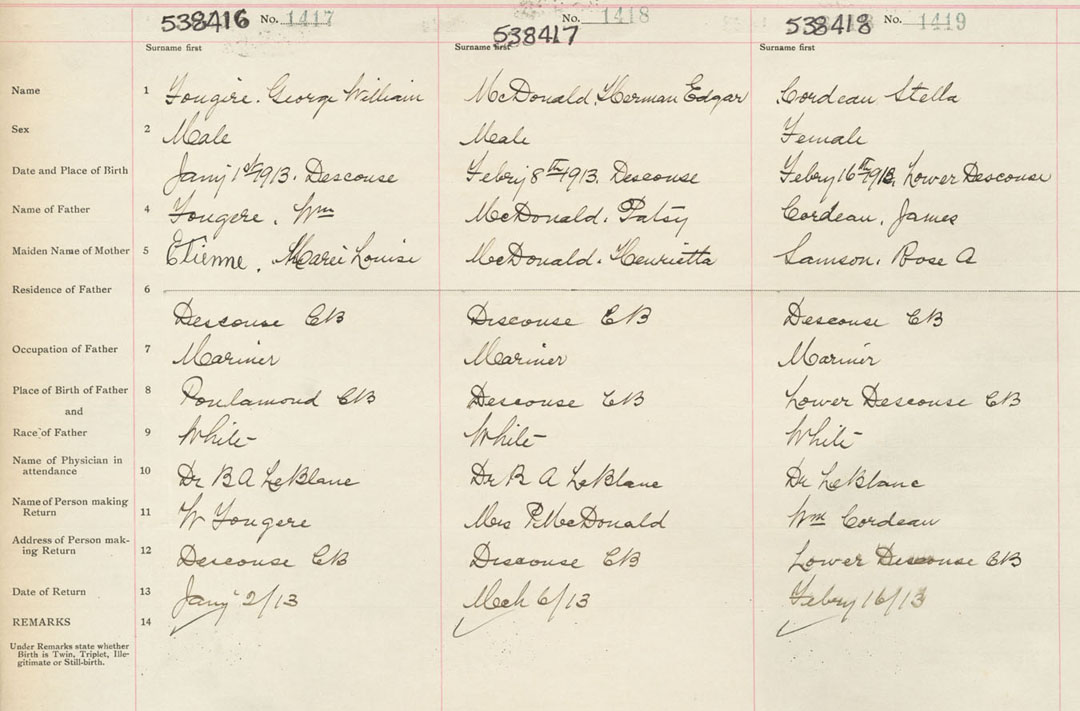 538416 No. 1417 538417 No. 1418 538418 No. 1419
Surname first Surname first Surname first
Name 1 Fougere. George William McDonald, Herman Edgar Cordeau Stella
Sex 2 Male Male Female
Date and Place of Birth Jany 1st 1913. Descouse Febry 8th 1913. Descouse Febry 16th 1913. Lower Descouse
Name of Father 4 Fougere, Wm McDonald. Patsy Cordeau, James
Maiden Name of Mother 5 Etienne, Marei Louise McDonald. Henrietta Samson. Rose A
Residence of Father 6
Descouse CB Descouse CB Descouse CB
Occupation of Father 7 Mariner Mariner Mariner
Place of Birth of Father 8 Poulamond CB Descouse CB Lower Descouse CB
and
Race of Father 9 White White White
Name of Physician in
attendance 10 Dr B A LeBlanc Dr B A LeBlanc Dr LeBlanc
Name of Person making
Return 11 W Fougere Mrs P. McDonald Wm Cordeau
Address of Person mak-
ing Return 12 Descouse CB Descouse CB Lower Descouse CB
Date of Return 13 Jany 2/13 Mch 6/13 Febry 16/13
REMARKS 14
Under Remarks state whether
Birth is Twin, Triplet, Ille-
gitimate or Still-birth.